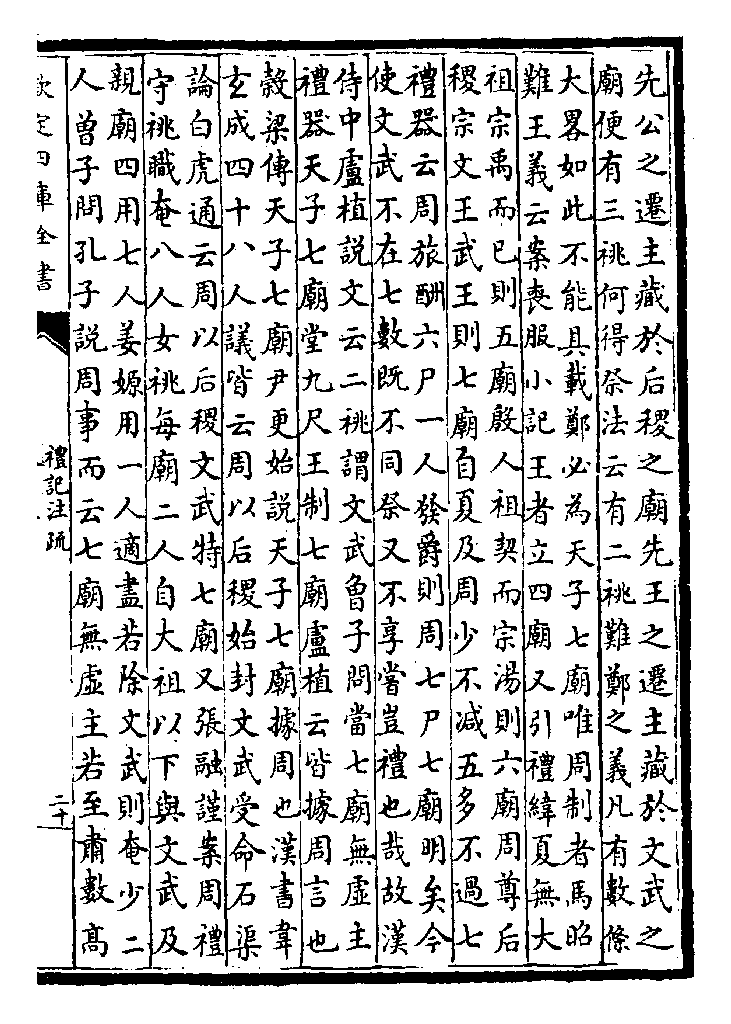 先公之遷主藏於后稷之廟先王之遷主藏於文武之
廟便有三祧何得祭法云有二祧難鄭之義凡有數條
大畧如此不能具載鄭必為天子七廟唯周制者馬昭
難王義云案喪服小記王者立四廟又引禮緯夏無大
祖宗禹而已則五廟殷人祖契而宗湯則六廟周尊后
稷宗文王武王則七廟自夏及周少不減五多不過七
禮器云周旅酬六尸一人發爵則周七尸七廟明矣今
使文武不在七數既不同祭又不享嘗豈禮也哉故漢
侍中盧植説文云二祧謂文武魯子問當七廟無虛主
禮器天子七廟堂九尺王制七廟盧植云皆據周言也
穀梁傳天子七廟尹更始説天子七廟據周也漢書韋
玄成四十八人議皆云周以后稷始封文武受命石渠
論白虎通云周以后稷文武特七廟又張融謹案周禮
守祧職奄八人女祧每廟二人自大祖以下與文武及
親廟四用七人姜嫄用一人適盡若除文武則奄少二
人曽子問孔子説周事而云七廟無虛主若至肅數髙
欽定四庫全書
禮記注疏
二十